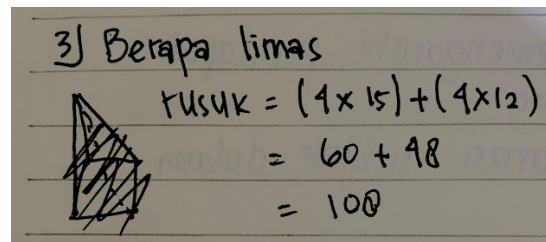 3) Berapa limas
rusuk = (4x15)+(4x12)
= 60 + 48
= 108